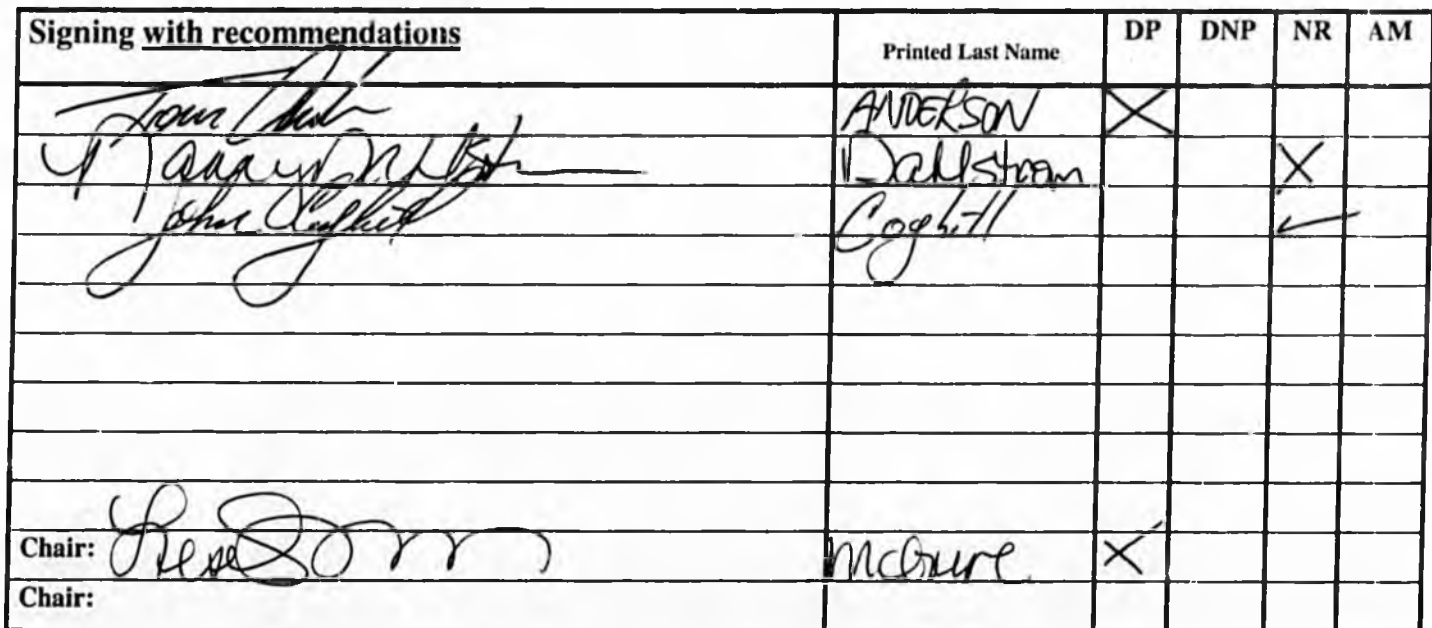 Signing with recommendations Printed Last Name DP DNP NR AM
Tom ANDERSON X
Nancy Dahlstrom Dahlstrom X
John Coghill Coghill ✓
Chair: Lesil McGuire X
Chair: